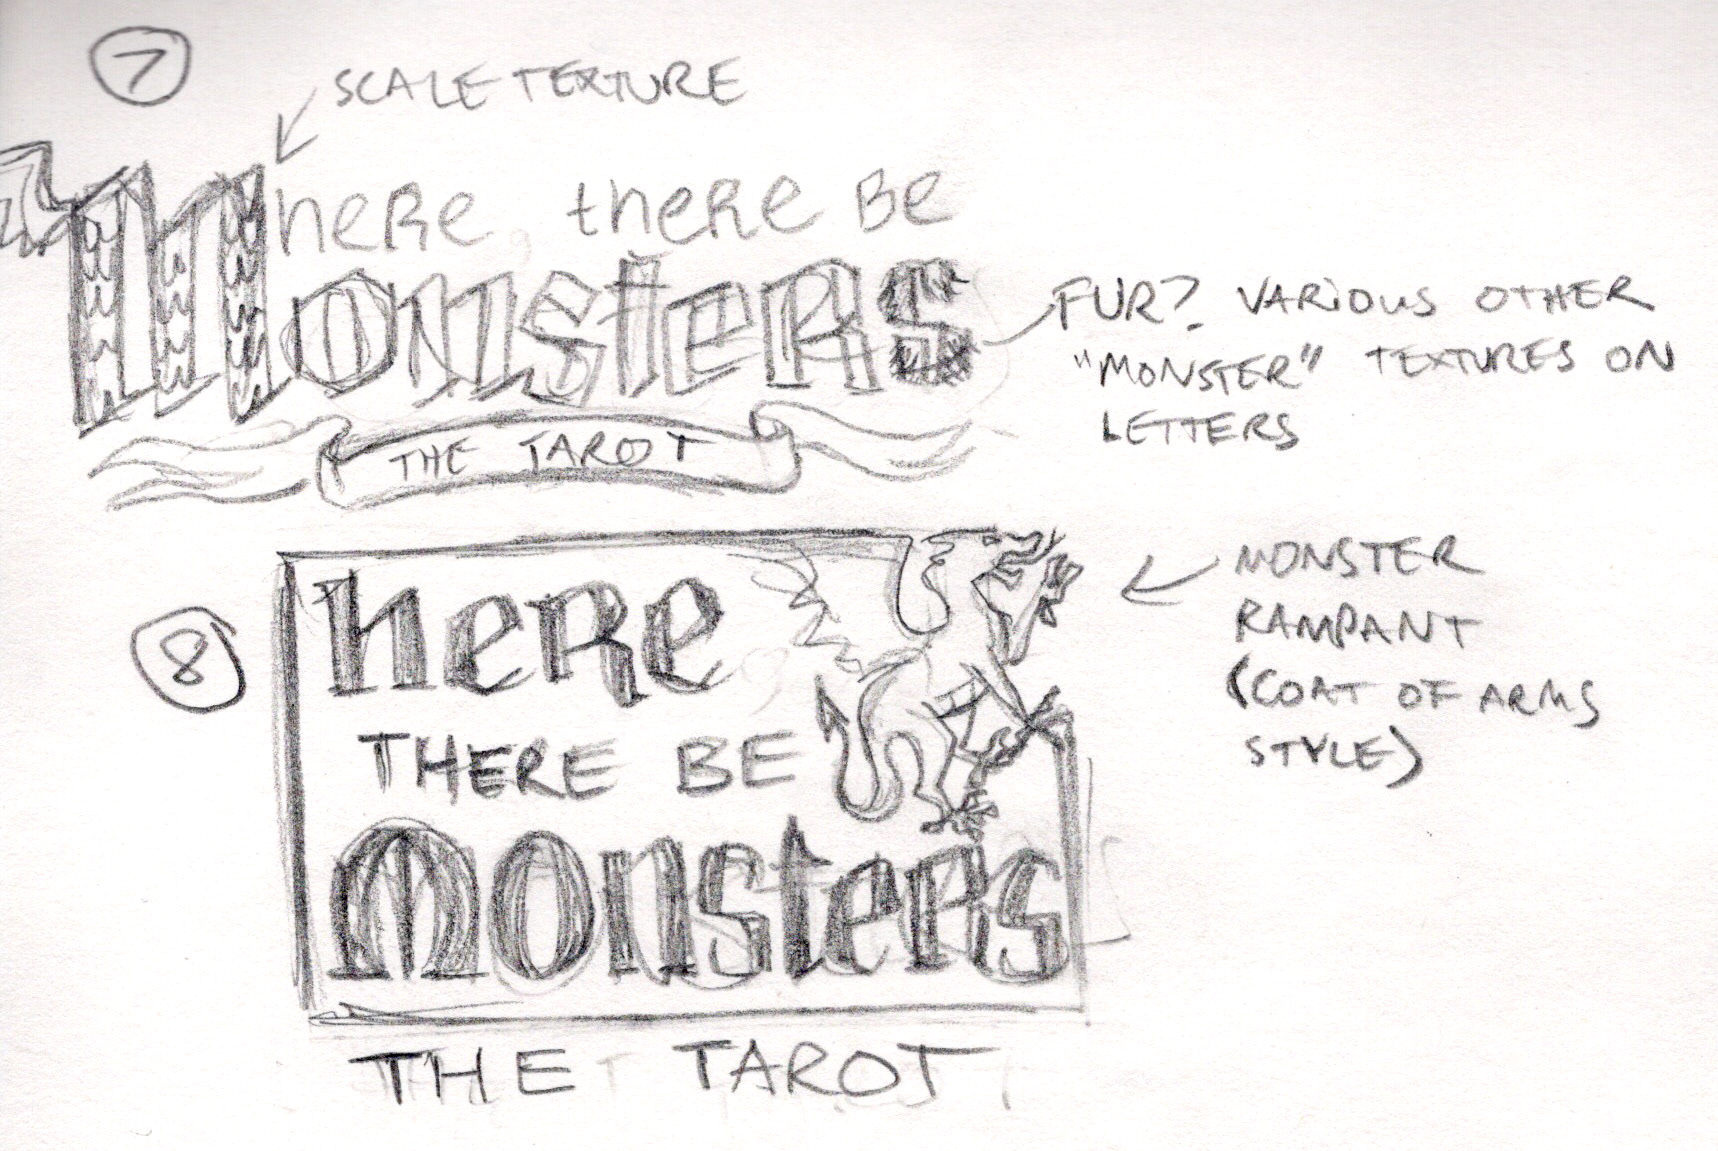 7
SCALE TEXTURE
here, there Be
Monsters
THE TAROT
FUR? VARIOUS OTHER
"MONSTER" TEXTURES ON
LETTERS
8
here
THERE BE
monsters
THE TAROT
MONSTER
RAMPANT
(COAT OF ARMS
STYLE)